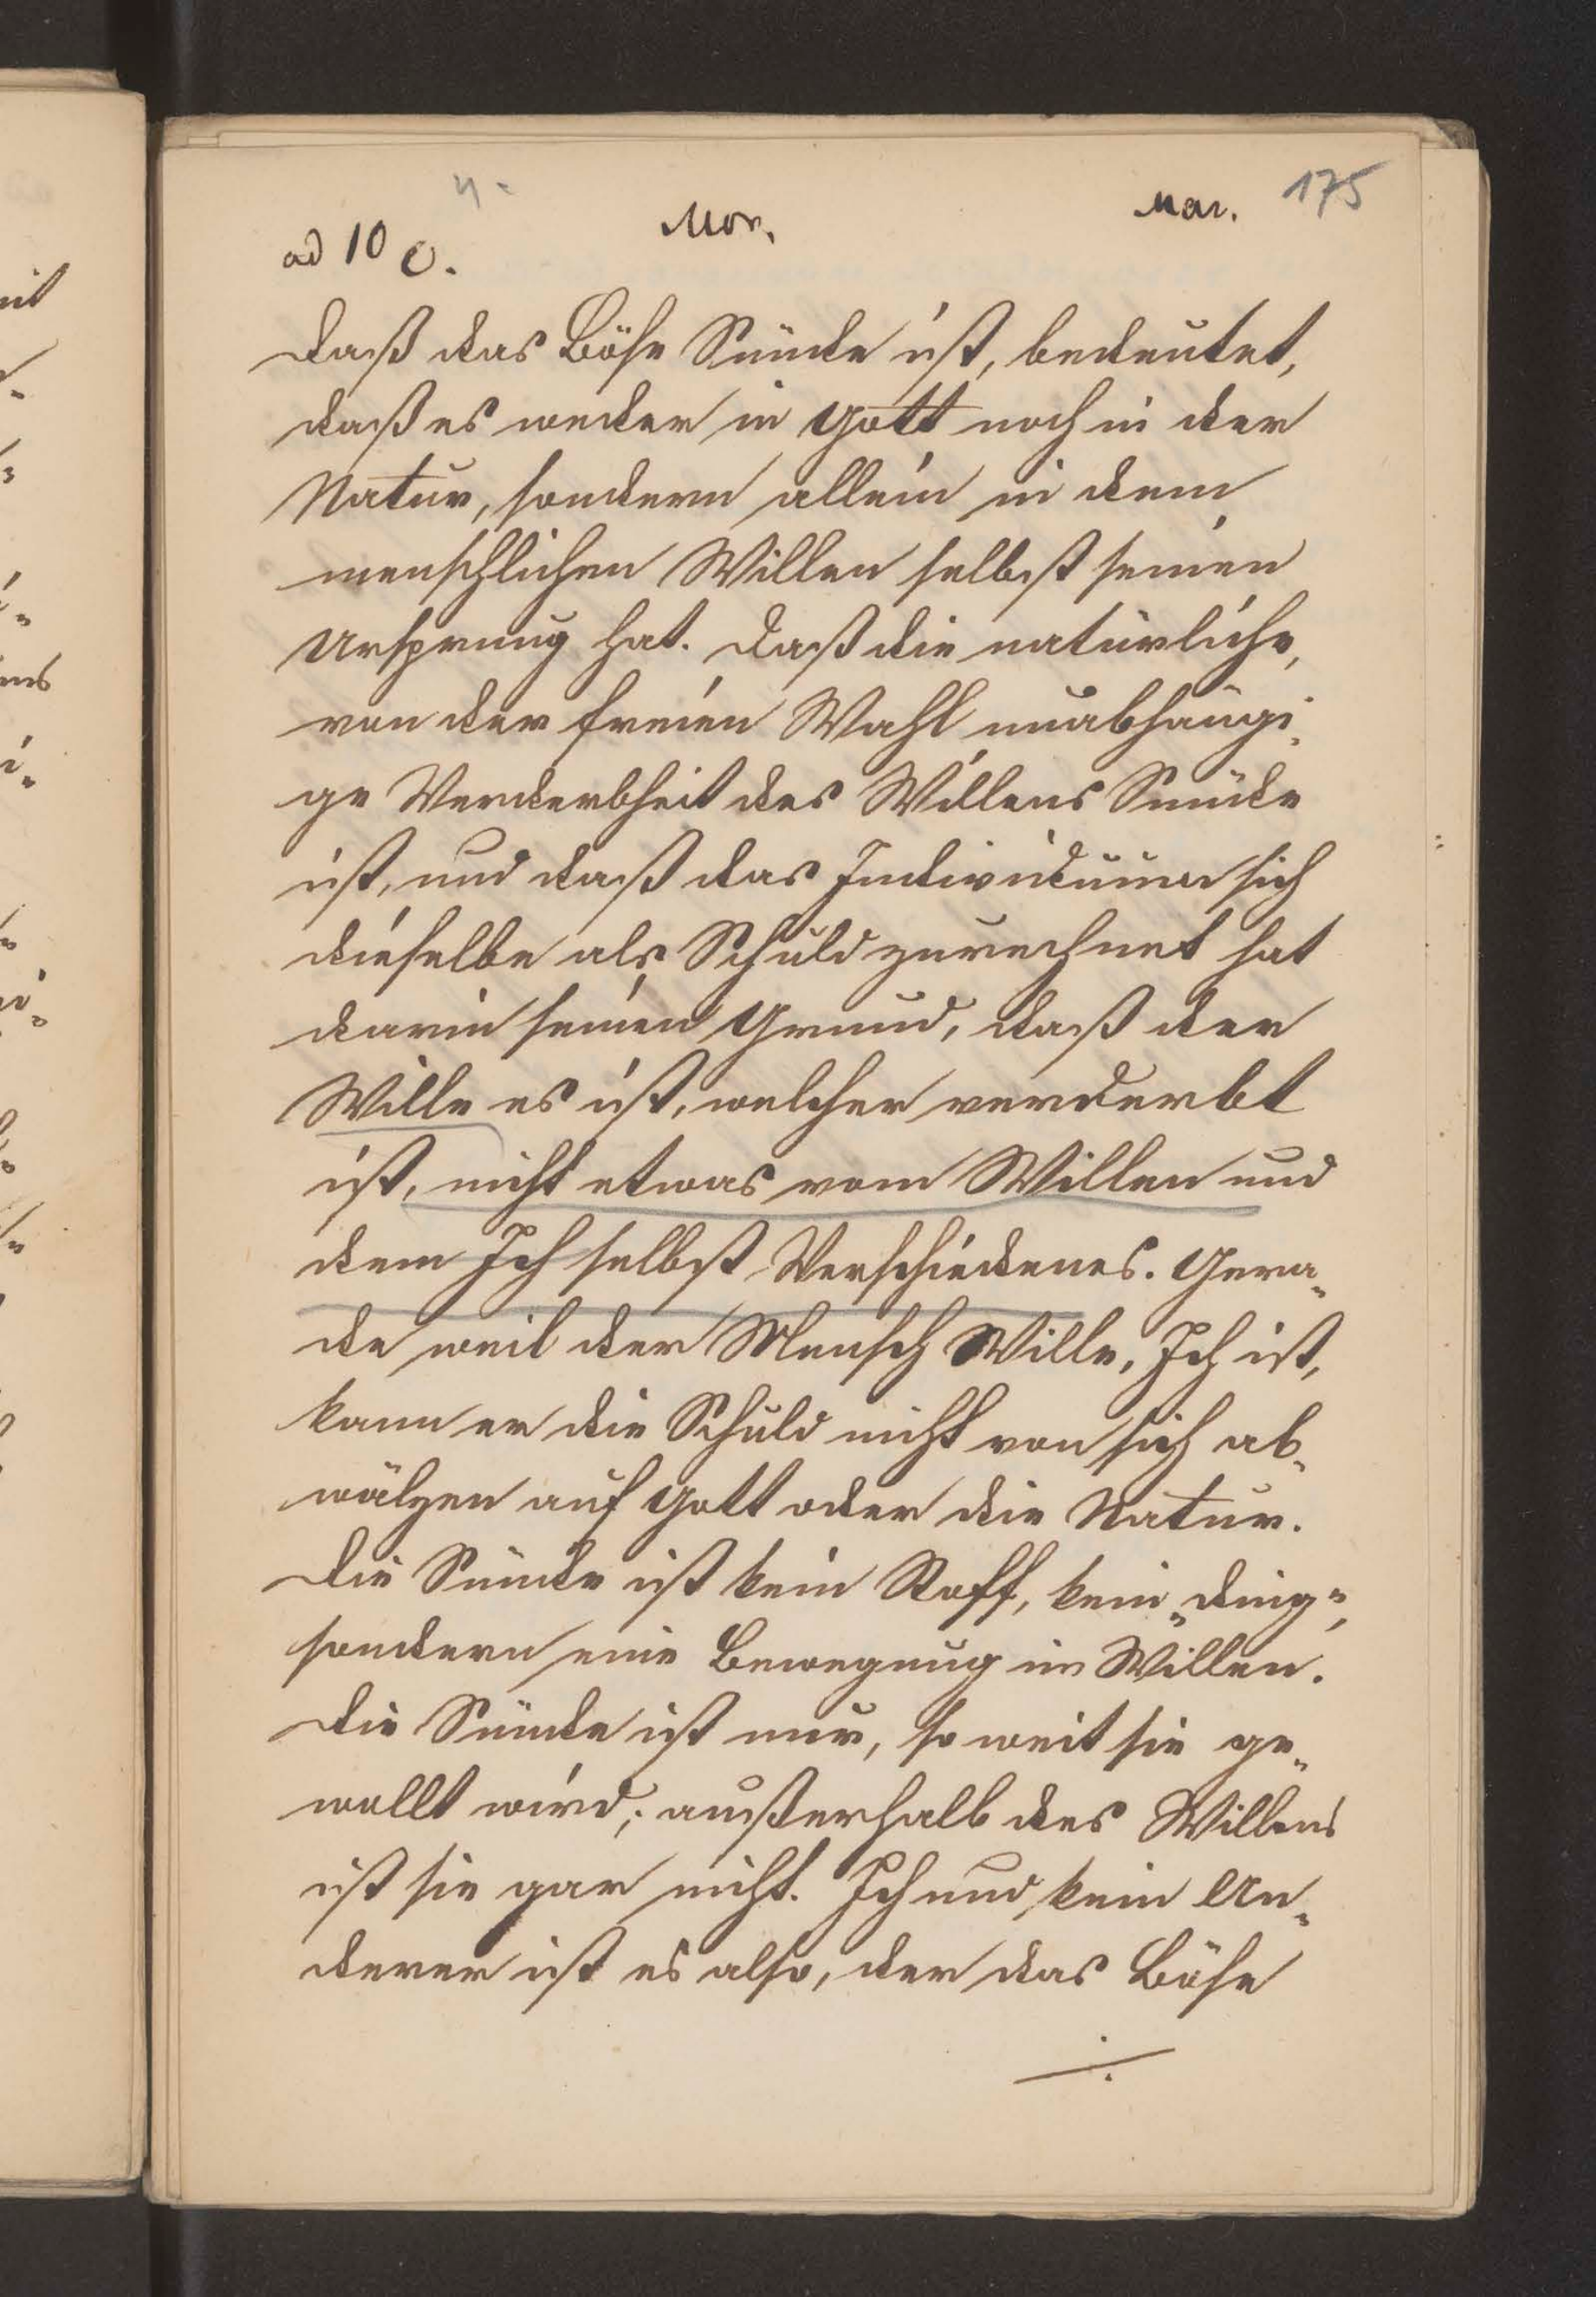 4-
Mor.
Mar. 175
ad 10 c.
Daß das Böse Sünde ist, bedeutet,
daß es weder in Gott noch in der
Natur, sondern allein in dem
menschlichen Willen selbst seinen
Ursprung hat. Daß die natürliche,
von der freien Wahl unabhängi-
ge Verderbheit des Willens Sünde
ist, und daß das Individuum sich
dieselbe als Schuld zurechnet hat
darin seinen Grund, daß der
Wille es ist, welcher verderbt
ist, nicht etwas vom Willen und
dem Ich selbst Verschiedenes. Gera-
de weil der Mensch Wille, Ich ist,
kann er die Schuld nicht von sich ab-
wälzen auf Gott oder die Natur.
Die Sünde ist kein Stoff, kein „Ding“,
sondern eine Bewegung im Willen.
Die Sünde ist nur, so weit sie ge-
wollt wird; außerhalb des Willens
ist sie gar nicht. Ich und kein An-
derer ist es also, der das Böse